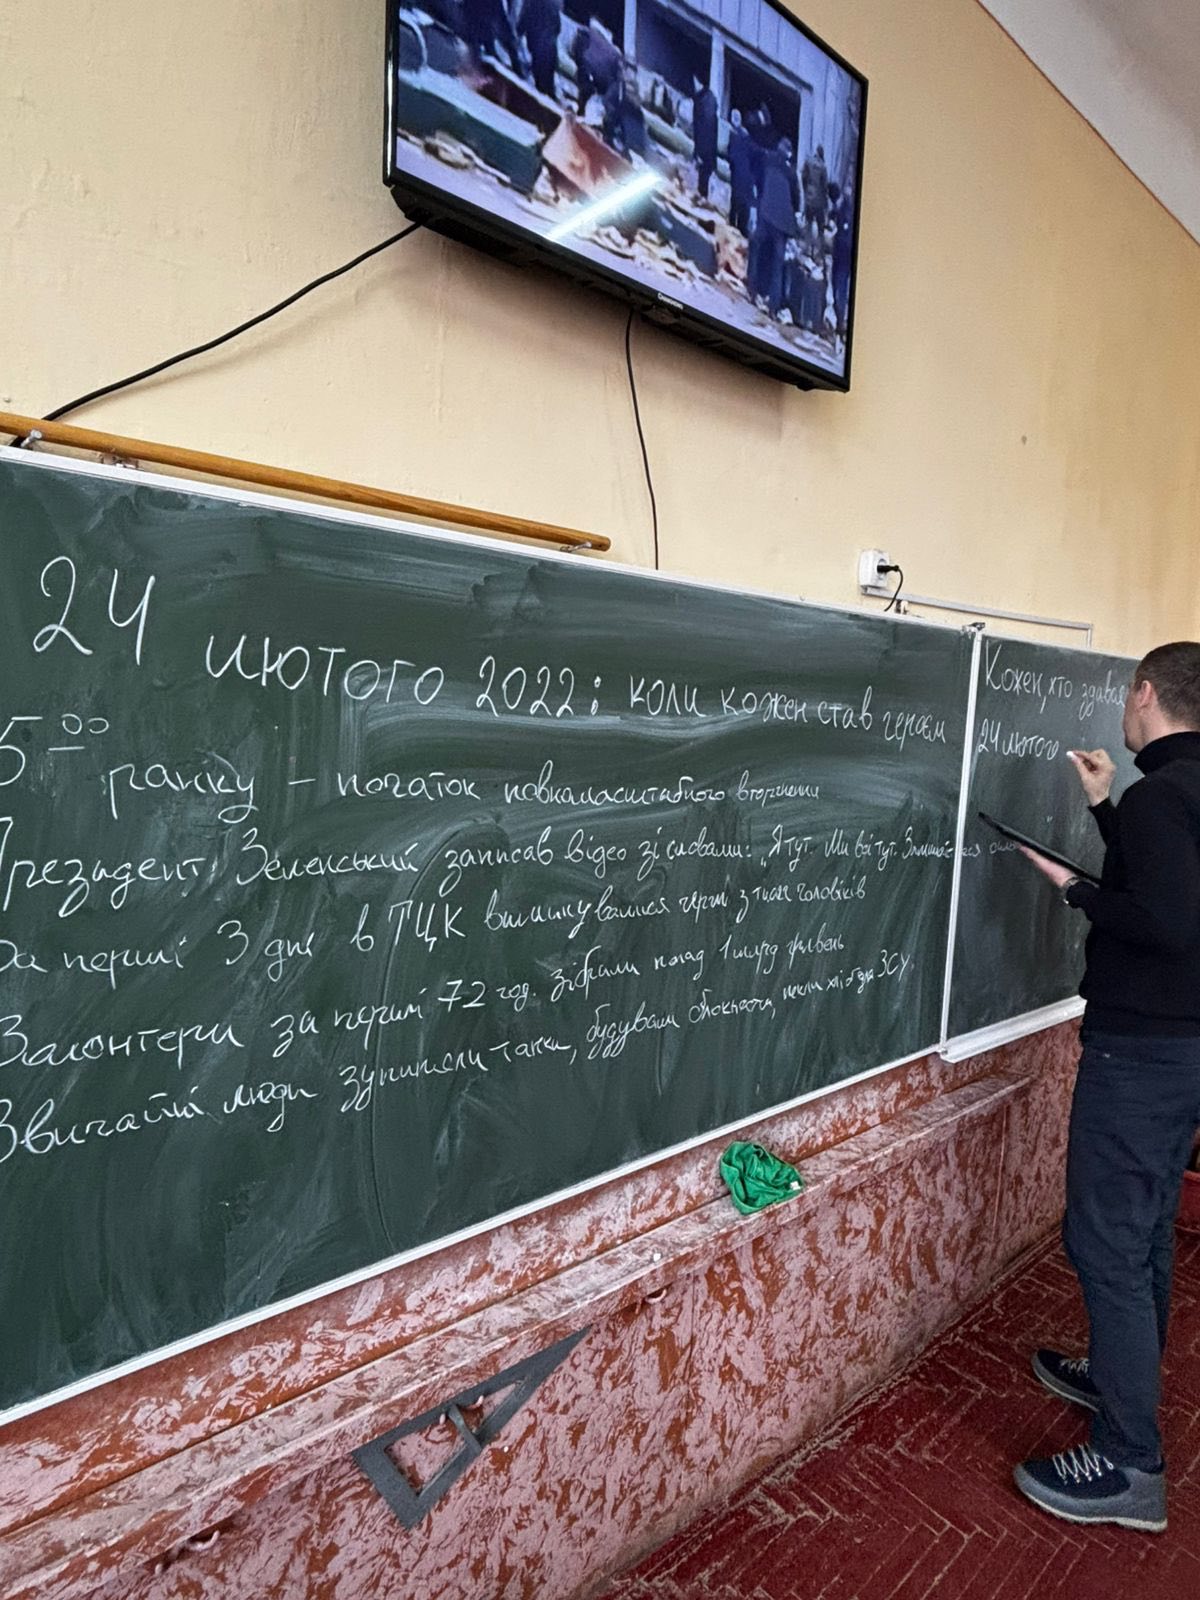 24 лютого 2022: коли кожен став героєм
5⁰⁰ ранку – початок повномасштабного вторгнення
Президент Зеленський записав відео зі словами: „Я тут. Ми всі тут.
За перші 3 дні в ТЦК вишикувалися черги з тисяч чоловіків
Волонтери за перші 72 год. зібрали понад 1 млрд гривень
Звичайні люди зупиняли танки, будували блокпости, пекли хліб для ЗСУ.
Кожен, хто
24 лютого